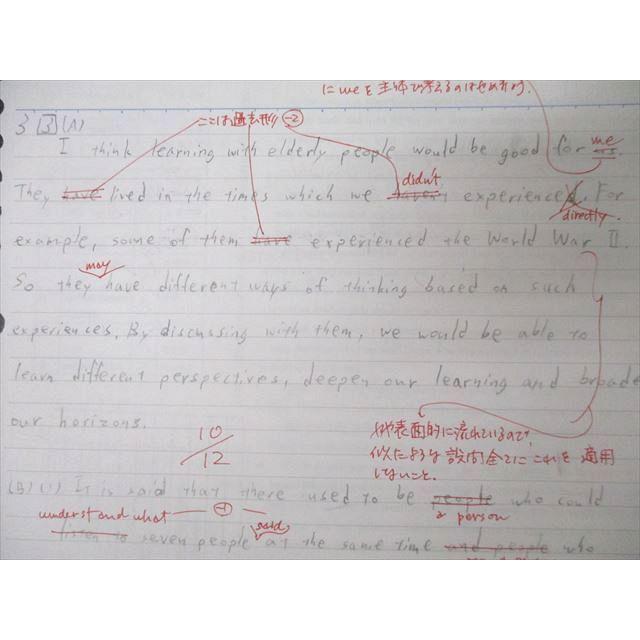 に me を主体で考えるのはやめよう.
3 3 (A)
ここは過去形 -2
I think learning with elderly people would be good for us. me
They have lived in the times which we haven't didn't experienced directly. For
example, some of them have experienced the World War II.
So they may have different ways of thinking based on such
experiences. By discussing with them, we would be able to
learn different perspectives, deepen our learning and broade
our horizons.
10/12
やや表面的に流れているので,
似たような設問全てにこれを適用
しないこと.
(B) (1) It is said that there used to be people who could
understand what -1 said a person
listen to seven people at the same time and people who